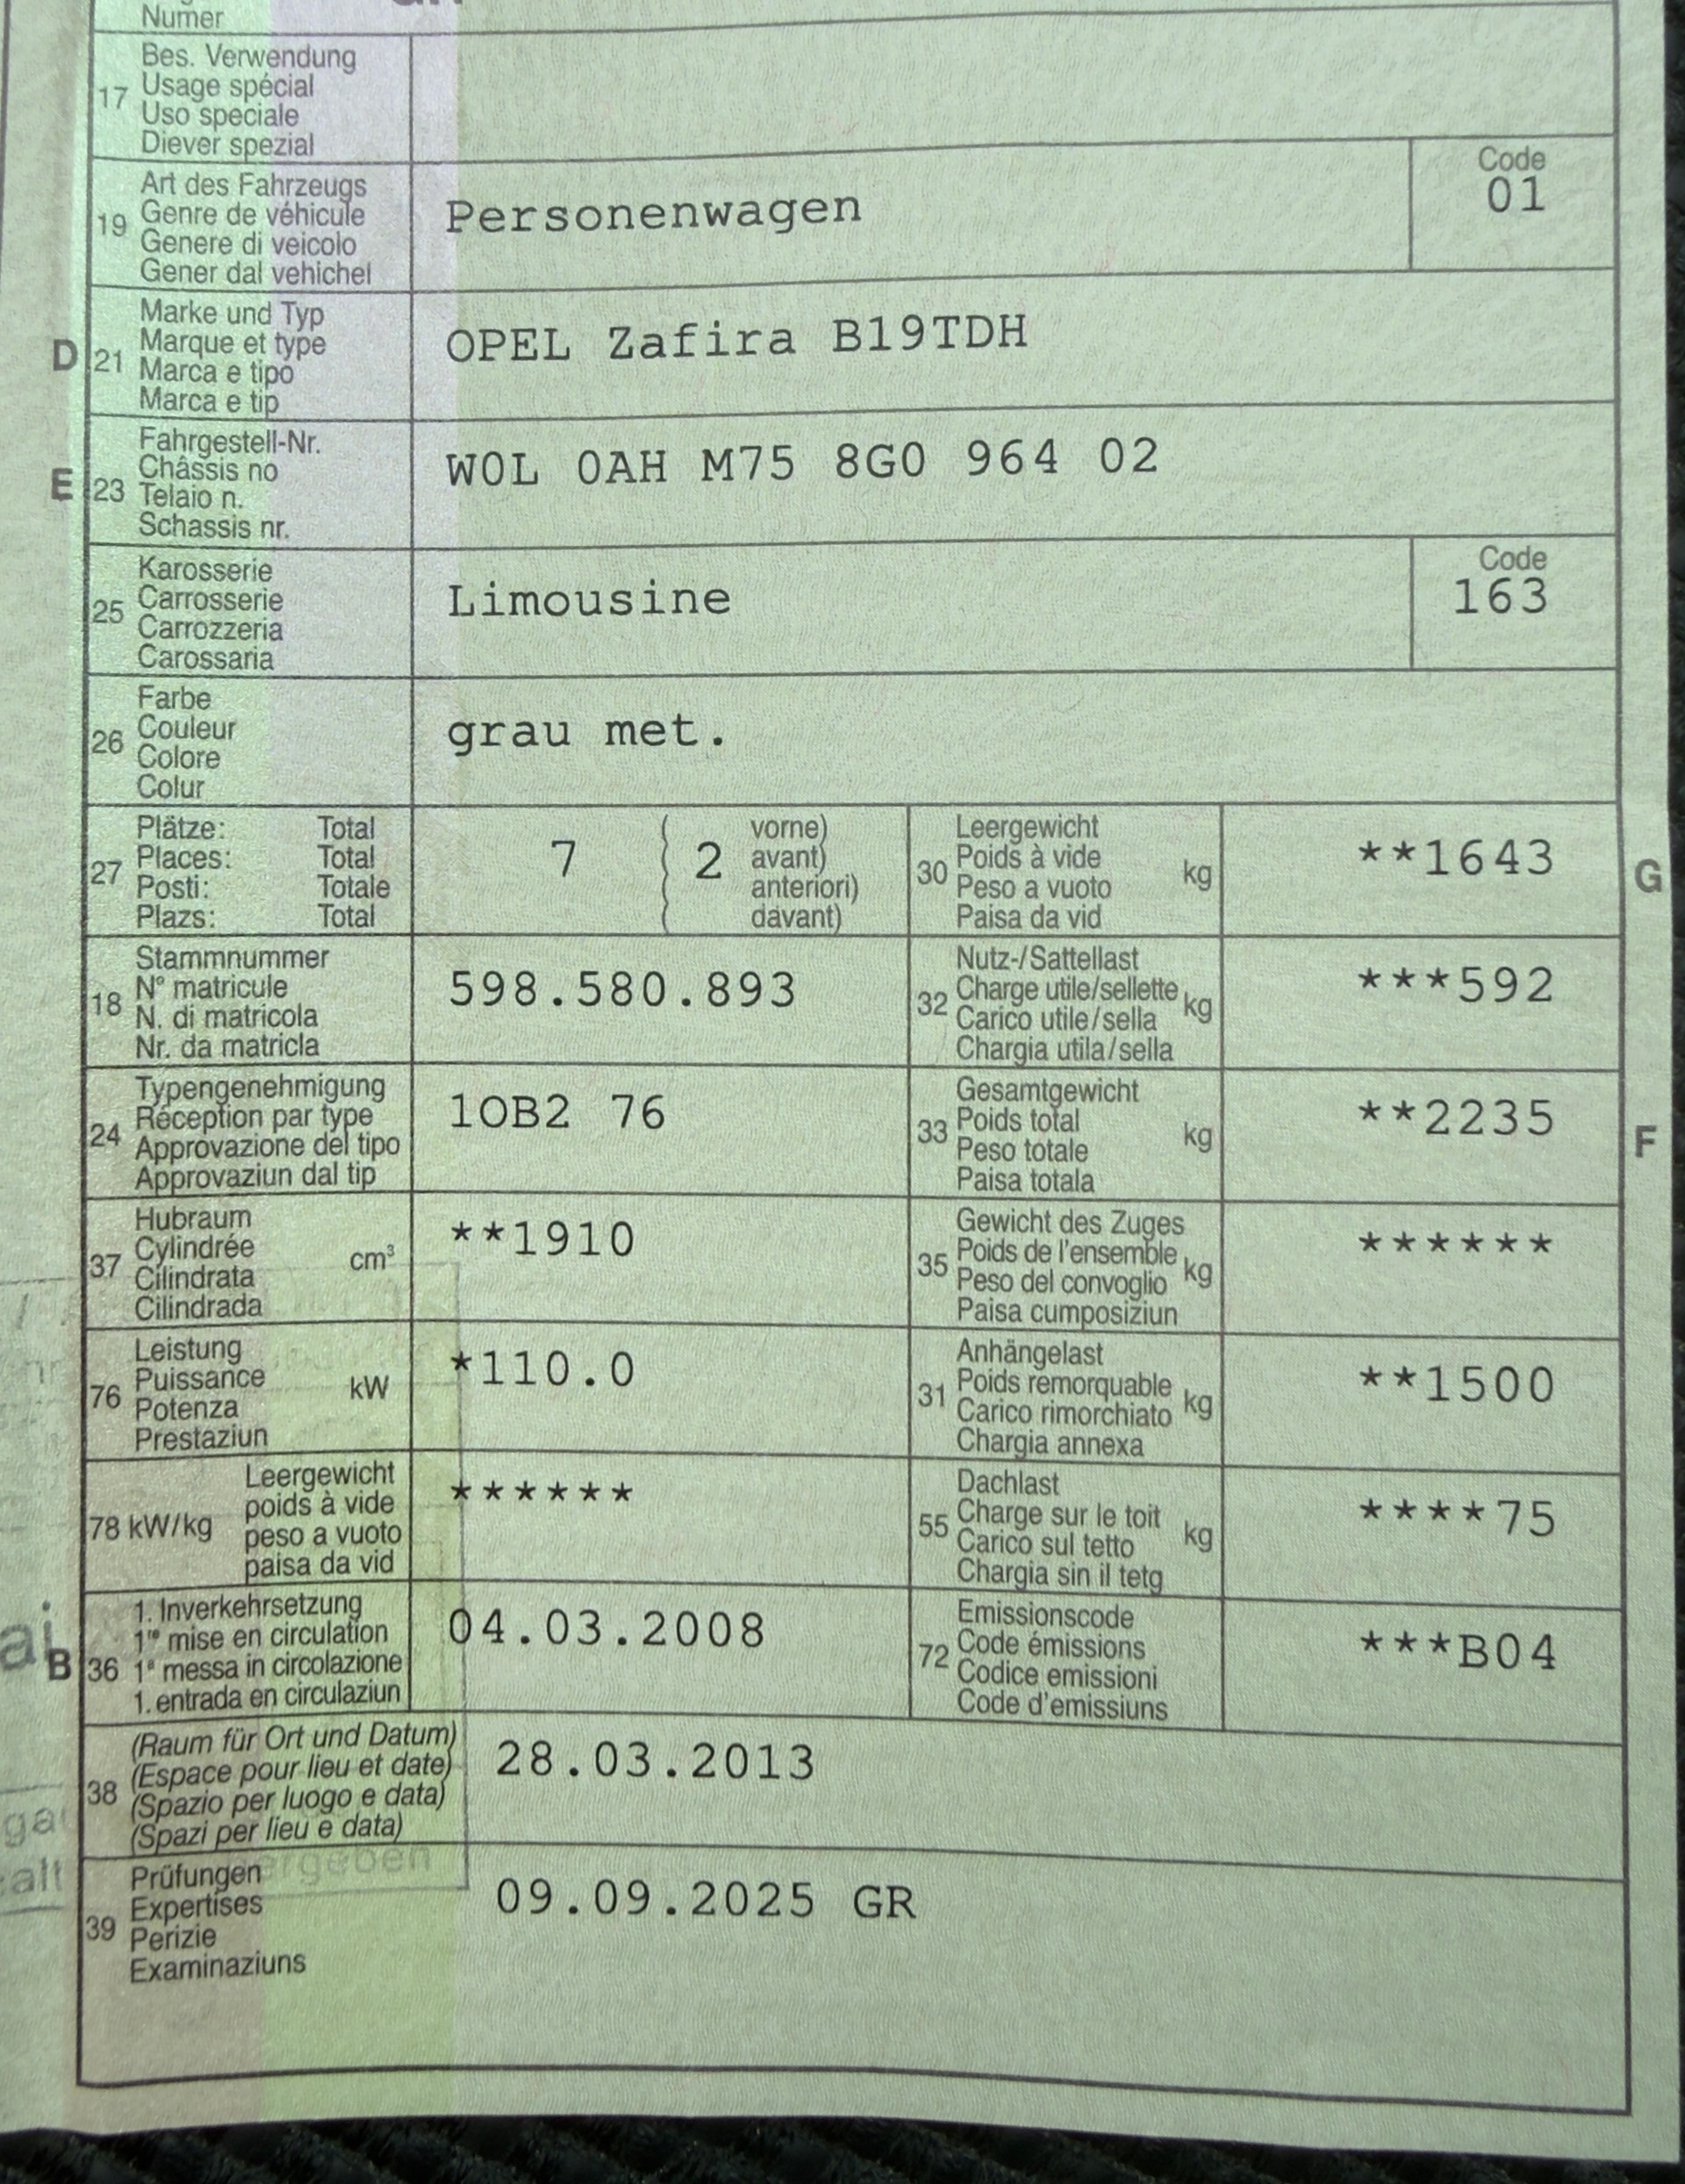 Numer
17 Bes. Verwendung
Usage spécial
Uso speciale
Diever spezial
19 Art des Fahrzeugs
Genre de véhicule
Genere di veicolo
Gener dal vehichel
Personenwagen
Code
01
D 21 Marke und Typ
Marque et type
Marca e tipo
Marca e tip
OPEL Zafira B19TDH
E 23 Fahrgestell-Nr.
Châssis no
Telaio n.
Schassis nr.
W0L 0AH M75 8G0 964 02
25 Karosserie
Carrosserie
Carrozzeria
Carossaria
Limousine
Code
163
26 Farbe
Couleur
Colore
Colur
grau met.
27 Plätze: Total
Places: Total
Posti: Totale
Plazs: Total
7 ( 2 vorne)
( avant)
( anteriori)
( davant)
30 Leergewicht
Poids à vide
Peso a vuoto
Paisa da vid
kg
**1643
G
18 Stammnummer
N° matricule
N. di matricola
Nr. da matricla
598.580.893
32 Nutz-/Sattellast
Charge utile/sellette
Carico utile/sella
Chargia utila/sella
kg
***592
24 Typengenehmigung
Réception par type
Approvazione del tipo
Approvaziun dal tip
1OB2 76
33 Gesamtgewicht
Poids total
Peso totale
Paisa totala
kg
**2235
F
37 Hubraum
Cylindrée
Cilindrata
Cilindrada
cm³
**1910
35 Gewicht des Zuges
Poids de l'ensemble
Peso del convoglio
Paisa cumposiziun
kg
******
76 Leistung
Puissance
Potenza
Prestaziun
kW
*110.0
31 Anhängelast
Poids remorquable
Carico rimorchiato
Chargia annexa
kg
**1500
78 kW/kg Leergewicht
poids à vide
peso a vuoto
paisa da vid
******
55 Dachlast
Charge sur le toit
Carico sul tetto
Chargia sin il tetg
kg
****75
B 36 1. Inverkehrsetzung
1re mise en circulation
1a messa in circolazione
1. entrada en circulaziun
04.03.2008
72 Emissionscode
Code émissions
Codice emissioni
Code d'emissiuns
***B04
38 (Raum für Ort und Datum)
(Espace pour lieu et date)
(Spazio per luogo e data)
(Spazi per lieu e data)
28.03.2013
39 Prüfungen
Expertises
Perizie
Examinaziuns
09.09.2025 GR